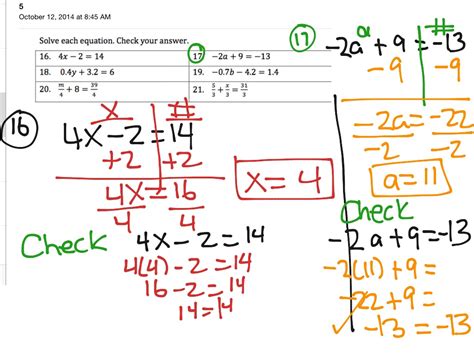 5
October 12, 2014 at 8:45 AM
Solve each equation. Check your answer.
16. 4x − 2 = 14
17. −2a + 9 = −13
18. 0.4y + 3.2 = 6
19. −0.7b − 4.2 = 1.4
20. m/4 + 8 = 39/4
21. 5/3 + x/3 = 31/3
16
x #
4x − 2 = 14
+2 +2
4x = 16
4 4
x = 4
Check 4x − 2 = 14
4(4) − 2 = 14
16 − 2 = 14
14 = 14
17
a #
−2a + 9 = −13
−9 −9
−2a = −22
−2 −2
a = 11
Check
−2a + 9 = −13
−2(11) + 9 =
−22 + 9 =
✓ −13 = −13